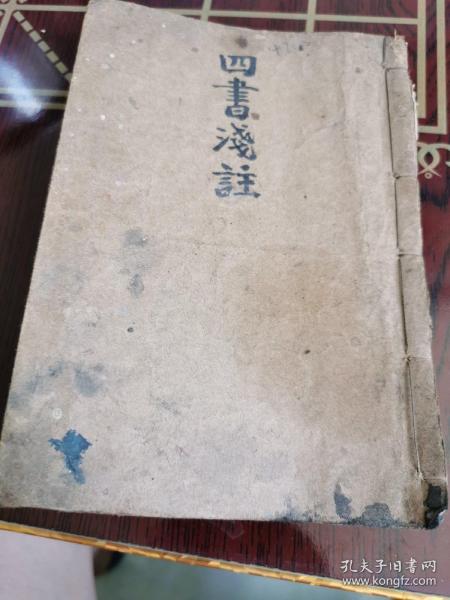 四書淺註
孔夫子旧书网
www.kongfz.com